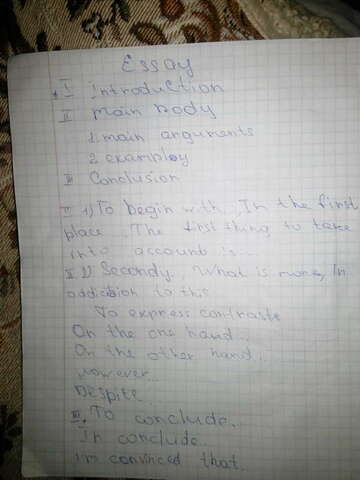 Essay
I Introduction
II main body
1. main arguments
2 exampley
III Conclusion
I 1) To begin with, In the first
place, The first thing to take
into account is...
II 1) Secondy. What is more, In
addiction to this
To express contrasts
On the one hand...
On the other hand.
However...
Despite...
III. To conclude..
In conclude...
I'm convinced that..